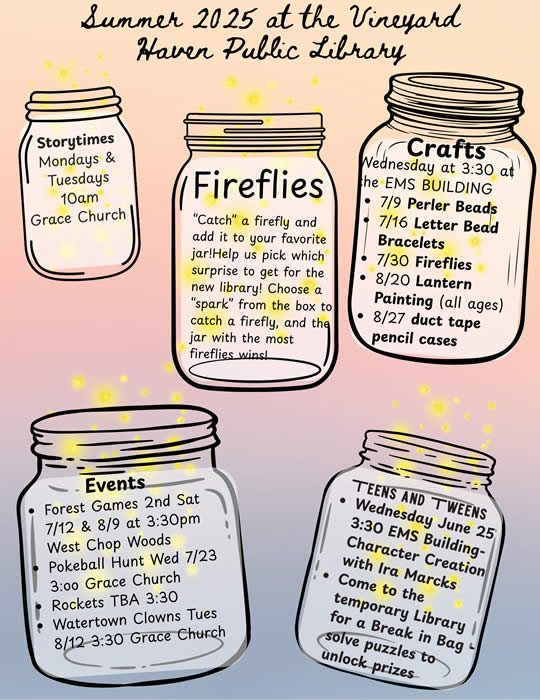 Summer 2025 at the Vineyard
Haven Public Library
Storytimes
Mondays &
Tuesdays
10am
Grace Church
Fireflies
"Catch" a firefly and
add it to your favorite
jar!Help us pick which
surprise to get for the
new library! Choose a
"spark" from the box to
catch a firefly, and the
jar with the most
fireflies wins!
Crafts
Wednesday at 3:30 at
the EMS BUILDING
• 7/9 Perler Beads
• 7/16 Letter Bead
Bracelets
• 7/30 Fireflies
• 8/20 Lantern
Painting (all ages)
• 8/27 duct tape
pencil cases
Events
• Forest Games 2nd Sat
7/12 & 8/9 at 3:30pm
West Chop Woods
• Pokeball Hunt Wed 7/23
3:00 Grace Church
• Rockets TBA 3:30
• Watertown Clowns Tues
8/12 3:30 Grace Church
TEENS AND TWEENS
• Wednesday June 25
3:30 EMS Building-
Character Creation
with Ira Marcks
• Come to the
temporary Library
for a Break in Bag -
solve puzzles to
unlock prizes